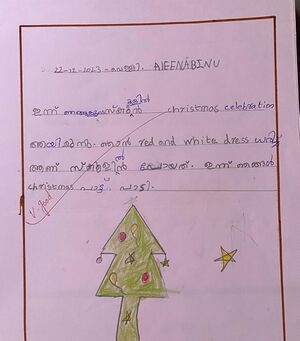 22-12-2023 - വെള്ളി. AJEENABINU
ഇന്ന് ഞങ്ങളുടെ സ്കൂളിൽ christmas celebration
ആയിരുന്നു. ഞാൻ red and white dress ധരിച്ച്
ആണ് സ്കൂളിൽ പോയത്. ഇന്ന് ഞങ്ങൾ
christmas പാട്ട് പാടി.
V. good